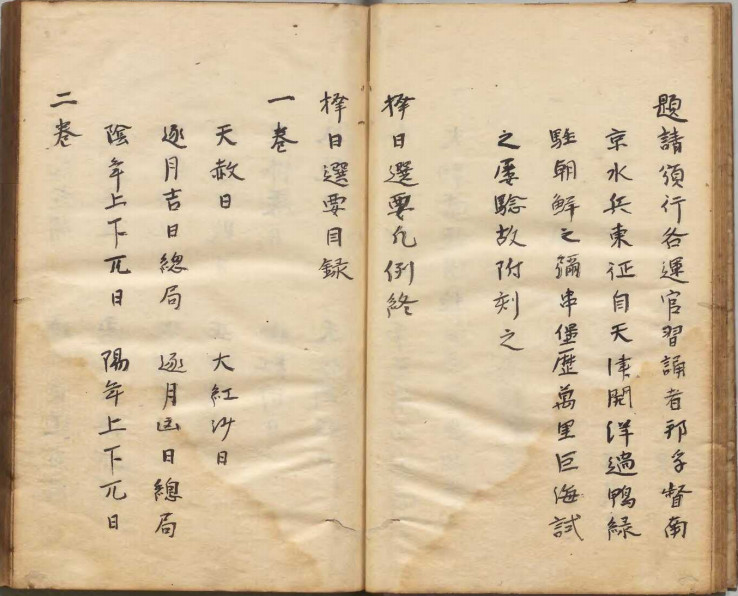 題請須行各運官習誦者邦孚督南
京水兵東征自天津開洋過鴨綠
駐朝鮮之彌串堡歷萬里巨海試
之屡驗故附刻之
擇日選要凡例終
擇日選要目録
一卷
天赦日 大紅沙日
逐月吉日總局 逐月凶日總局
陰年上下兀日 陽年上下兀日
二卷